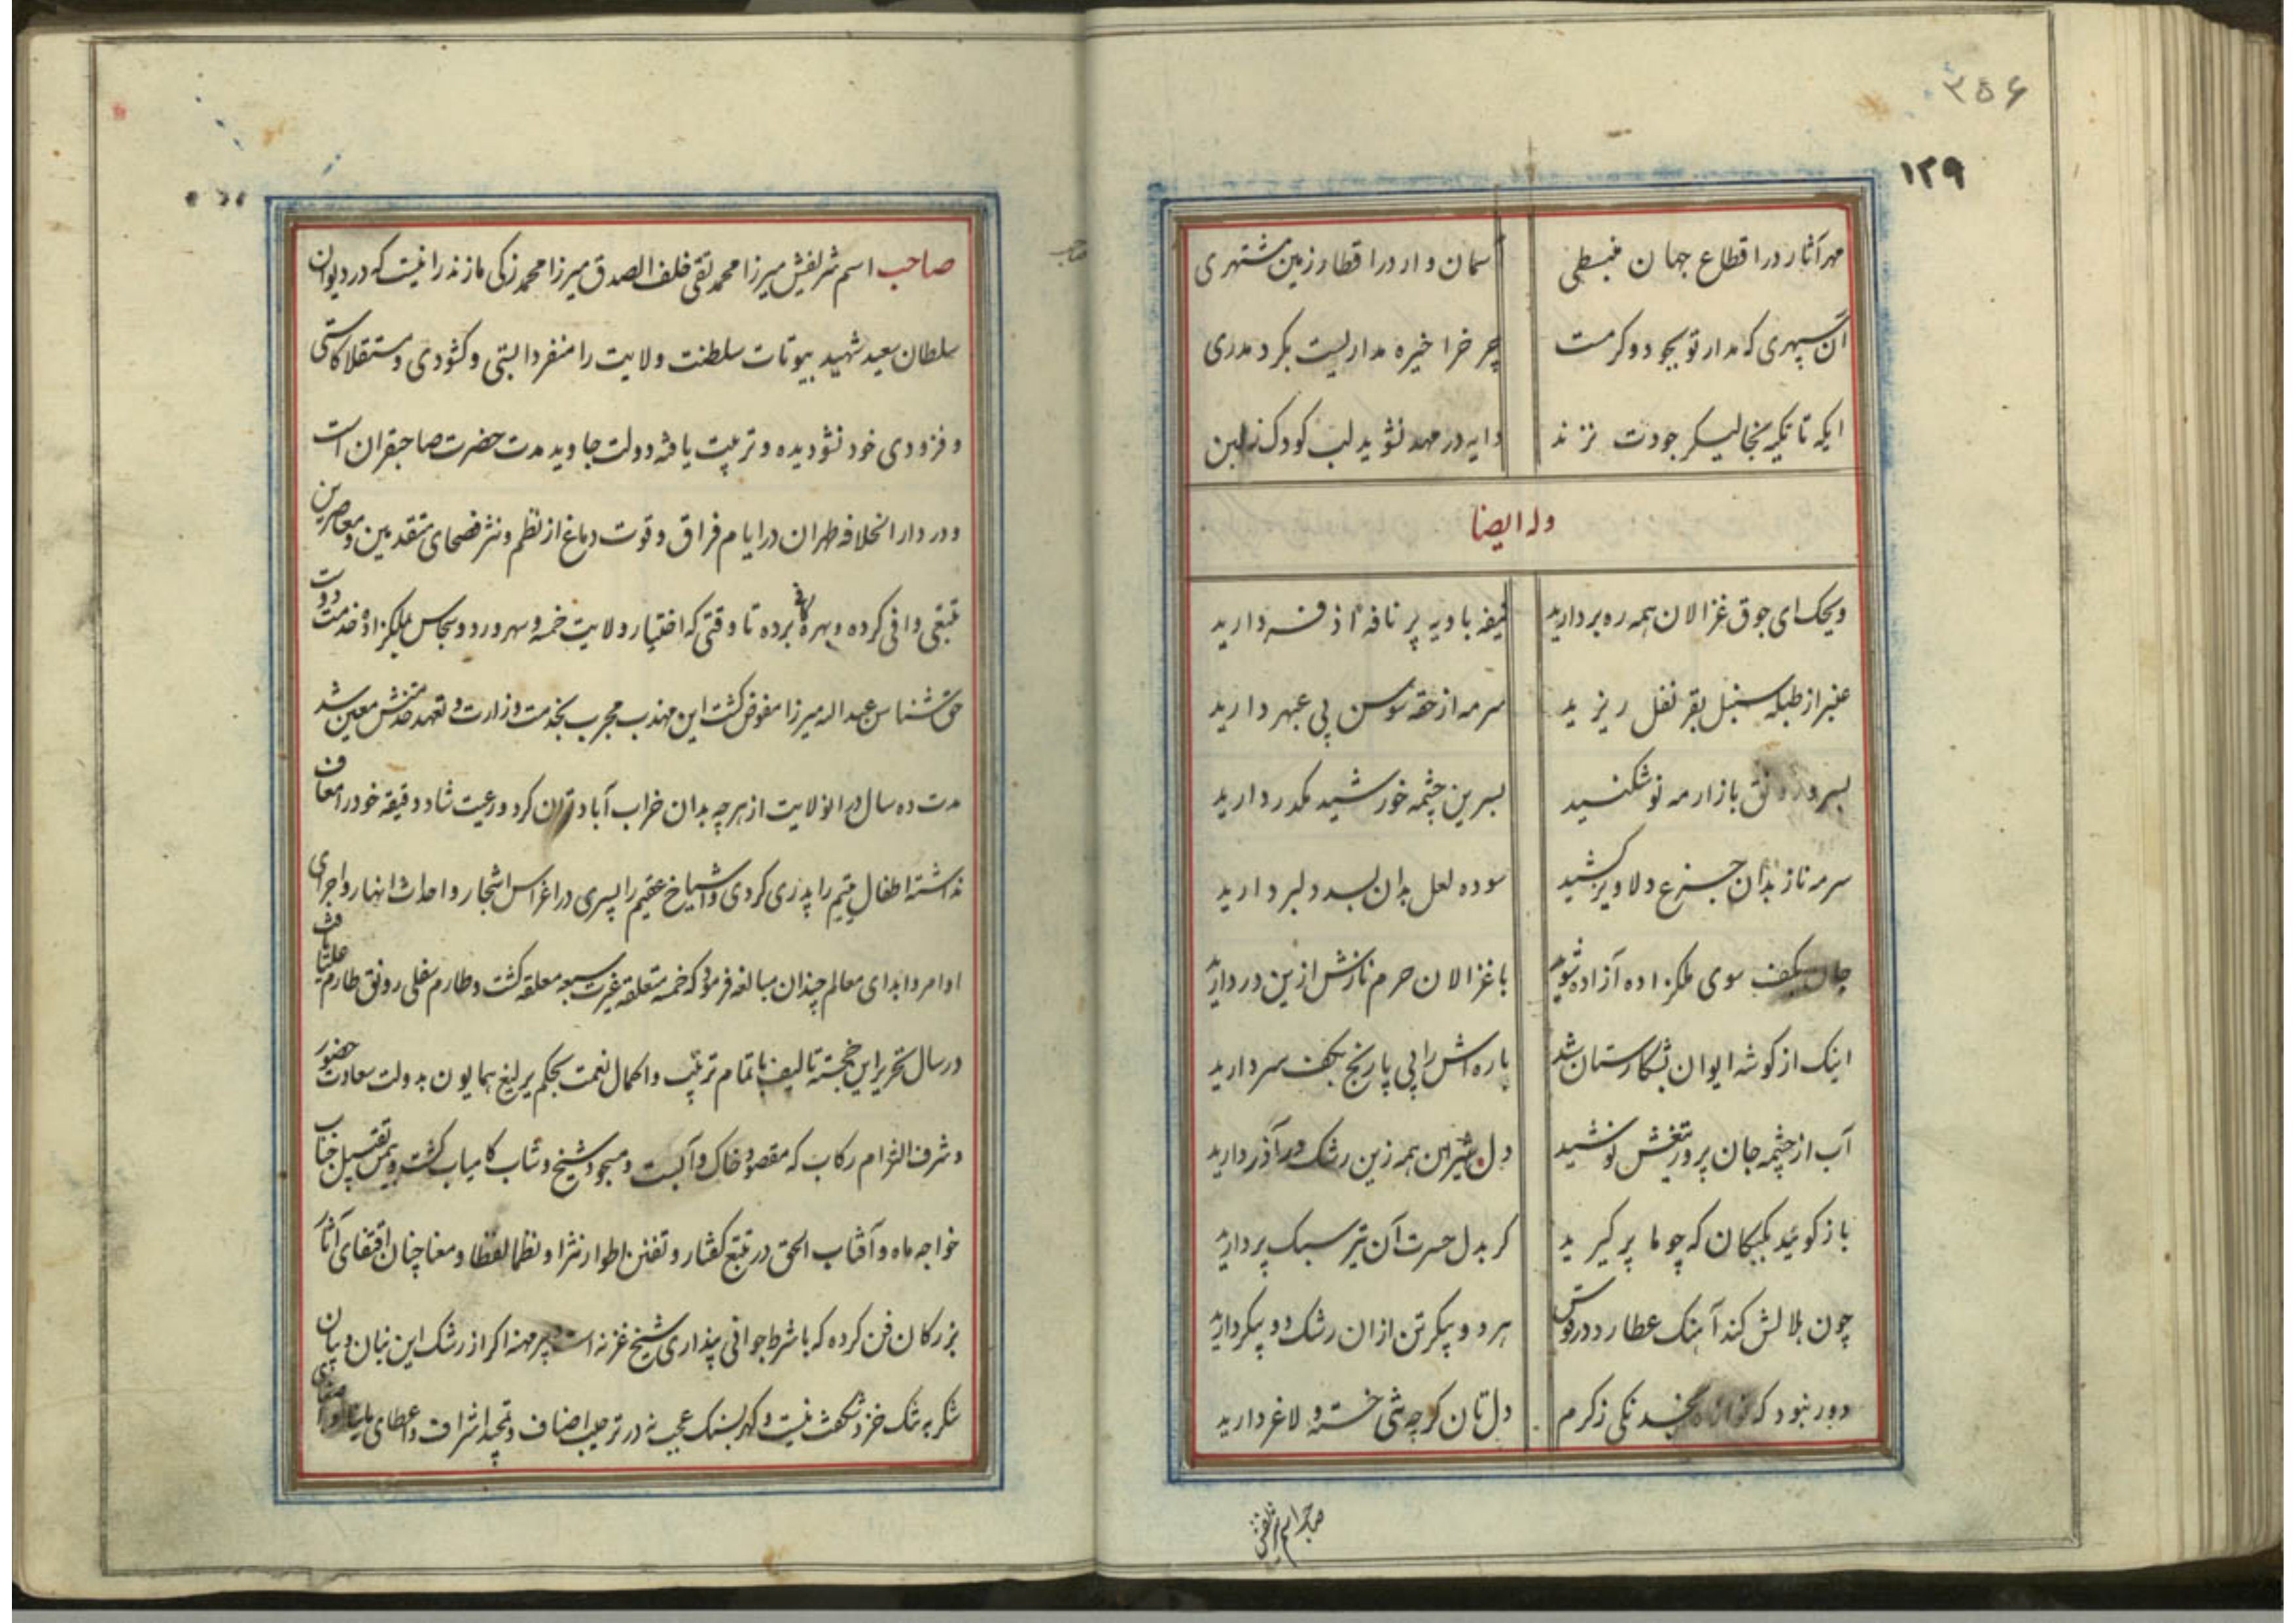 ۳۵۶
۱۲۹
مهر آثار در اقطاع جهان منبسطی
آسمان وار در اقطار زمین مشتهری
آن سپهری که مدار تو بجود و کرمست
چرخ را خیره مداریست بگرد مدری
ایکه تا تکیه بنجالیگر جودت نزند
دایه در مهد نشوید لب کودک ز لبن
وله ایضا
ویحک ای جوق غزالان همه ره بردارید
نیفه بادیه پر نافه اذفر دارید
عنبر از طبله سنبل بقرنفل ریزید
سرمه از حقه سوسن پی عبهر دارید
بسرو رونق بازار مه نو شکنید
بسرین چشمه خورشید مکدر دارید
سرمه ناز بدان جزع دلاویز کشید
سوده لعل بدان بسد دلبر دارید
جان بکف سوی ملکزاده آزاده شوید
با غزالان حرم نازش ازین در دارید
اینک از کوشه ایوان بشکارستان شد
باره اش را پی پا رنج بکف سر دارید
آب از چشمه جان پرور تیغش نوشید
دل شیران همه زین رشک در آذر دارید
باز کوئید بکبکان که چو ما پر کیرید
کر بدل حسرت آن تیر سبک پر دارید
چون بلالش کند آهنک عطارد در
هر دو پیکر تن ازان رشک دو پیکر دارید
دور نبود که بخسد تکی ز کرم
دلتان کر چه شی خسته و لاغر دارید
صاحب اسم شریفش
صاحب اسم شریفش میرزا محمد تقی خلف الصدق میرزا محمد زکی مازندرانیست که در دیوان
سلطان سعید شهید بیوتات سلطنت ولایت را منفردا بستی و کشودی و مستقلا کاستی
و فزودی خود نشو دیده و تربیت یافته دولت جاوید مدت حضرت صاحبقران است
و در دار الخلافه طهران در ایام فراق و قوت دماغ از نظم و نثر فصحای متقدمین و معاصرین
تتبعی وافی کرده و بهره کافی برده تا وقتی که اختیار ولایت خمسه و سهرورد و سجاس بملکزاده خدمت دوست
حق شناس عبد الله میرزا مفوض کشت این مهذب مجرب بخدمت وزارت و تعهد خدمتش معین شد
مدت ده سال در انولایت از هر چه بدان خراب آباد توان کرد و رعیت شاد دقیقه خود را معاف
نداشته اطفال یتیم را پدری کردی و اشیاخ عقیم را پسری در اغراس اشجار و احداث انهار و اجرای
اوامر و ابدای معالم چندان مبالغه فرمود که خمسه متعلقه غیرت سبعه معلقه کشت و طارم سفلی رونق طارم علیا یافت
در سال تحریر این خجسته تالیف با تمام ترتیب و اکمال نعمت بحکم یرلیغ همایون بدولت سعادت حضور
و شرف التزام رکاب که مقصود خاک و آبست و مسجود شیخ و شاب کامیاب کشت و بیمن تقبیل جناب
خواجه ماه و آفتاب الحق در تتبع کفتار و تفنن اطوار نثرا و نظما لفظا و معنا چنان اقتفای آثار
بزرکان فن کرده که با شرط جوانی پنداری شیخ غزنه است و پیر مهنه اکر از رشک این بنان و بیان
شکر به تنک خزد شکفت نیست و کهر بسنک عجب نه در ترحیب اضیاف و تحیه اشراف و اعطای